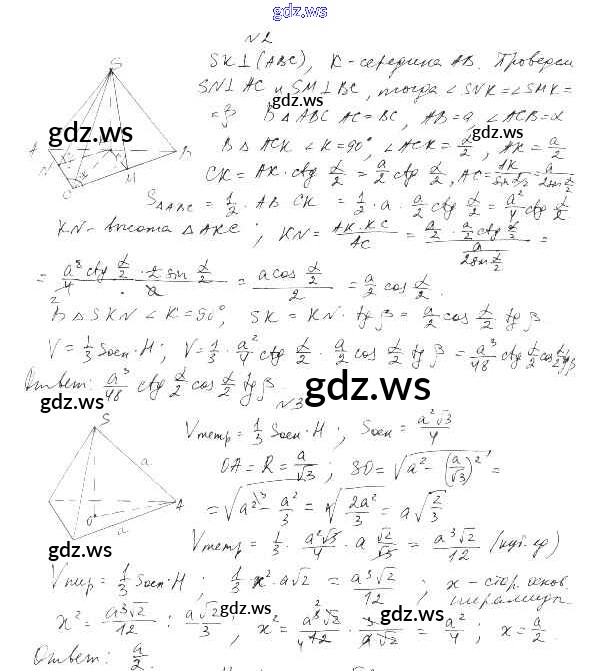 gdz.ws
№2
SK⊥(ABC), K - середина AB. Проведем
SN⊥AC и SM⊥BC, тогда ∠SNK=∠SMK=
=β В △ABC AC=BC, AB=a, ∠ACB=α
В △ACK ∠K=90°, ∠ACK=α/2, AK=a/2
CK = AK·ctg α/2 = a/2 ctg α/2, AC = AK/sin α/2 = a/2sin α/2
S△ABC = 1/2·AB·CK = 1/2·a·a/2 ctg α/2 = a²/4 ctg α/2
KN - высота △AKC; KN = AK·KC/AC = a/2·a/2 ctg α/2 / a/2sin α/2 =
= a² ctg α/2 · 2 sin α/2 / 4·a = a cos α/2 / 2 = a/2 cos α/2.
В △SKN ∠K=90°, SK = KN·tg β = a/2 cos α/2 tg β
V = 1/3 Sосн·H; V = 1/3·a²/4 ctg α/2·a/2 cos α/2 tg β = a³/48 ctg α/2 cos α/2 tg β
Ответ: a³/48 ctg α/2 cos α/2 tg β.
№3
Vтетр = 1/3 Sосн·H; Sосн = a²√3/4
OA = R = a/√3; SO = √(a² - (a/√3)²) =
= √(a² - a²/3) = √(2a²/3) = a√(2/3)
Vтетр = 1/3·a²√3/4·a √2/√3 = a³√2/12 (куб.ед)
Vпир = 1/3 Sосн·H; 1/3·x²·a√2 = a³√2/12; x - стор. основ.
пирамиды.
x² = a³√2/12 : a√2/3; x² = a³√2/12 · 3/a√2 = a²/4; x = a/2.
Ответ: a/2.
S
A
B
C
K
N
M
gdz.ws
gdz.ws
gdz.ws
gdz.ws
gdz.ws
S
a
O
A
a
gdz.ws
gdz.ws
gdz.ws